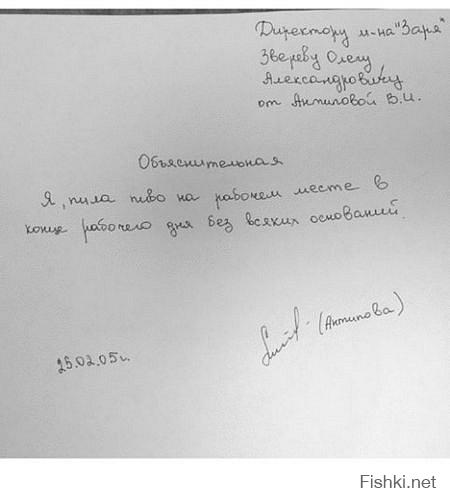 Директору м-на "Заря"
Звереву Олегу
Александровичу
от Антиповой В.И.
Объяснительная
Я, пила пиво на рабочем месте в
конце рабочего дня без всяких оснований.
(Антипова)
25.02.05г.
Fishki.net